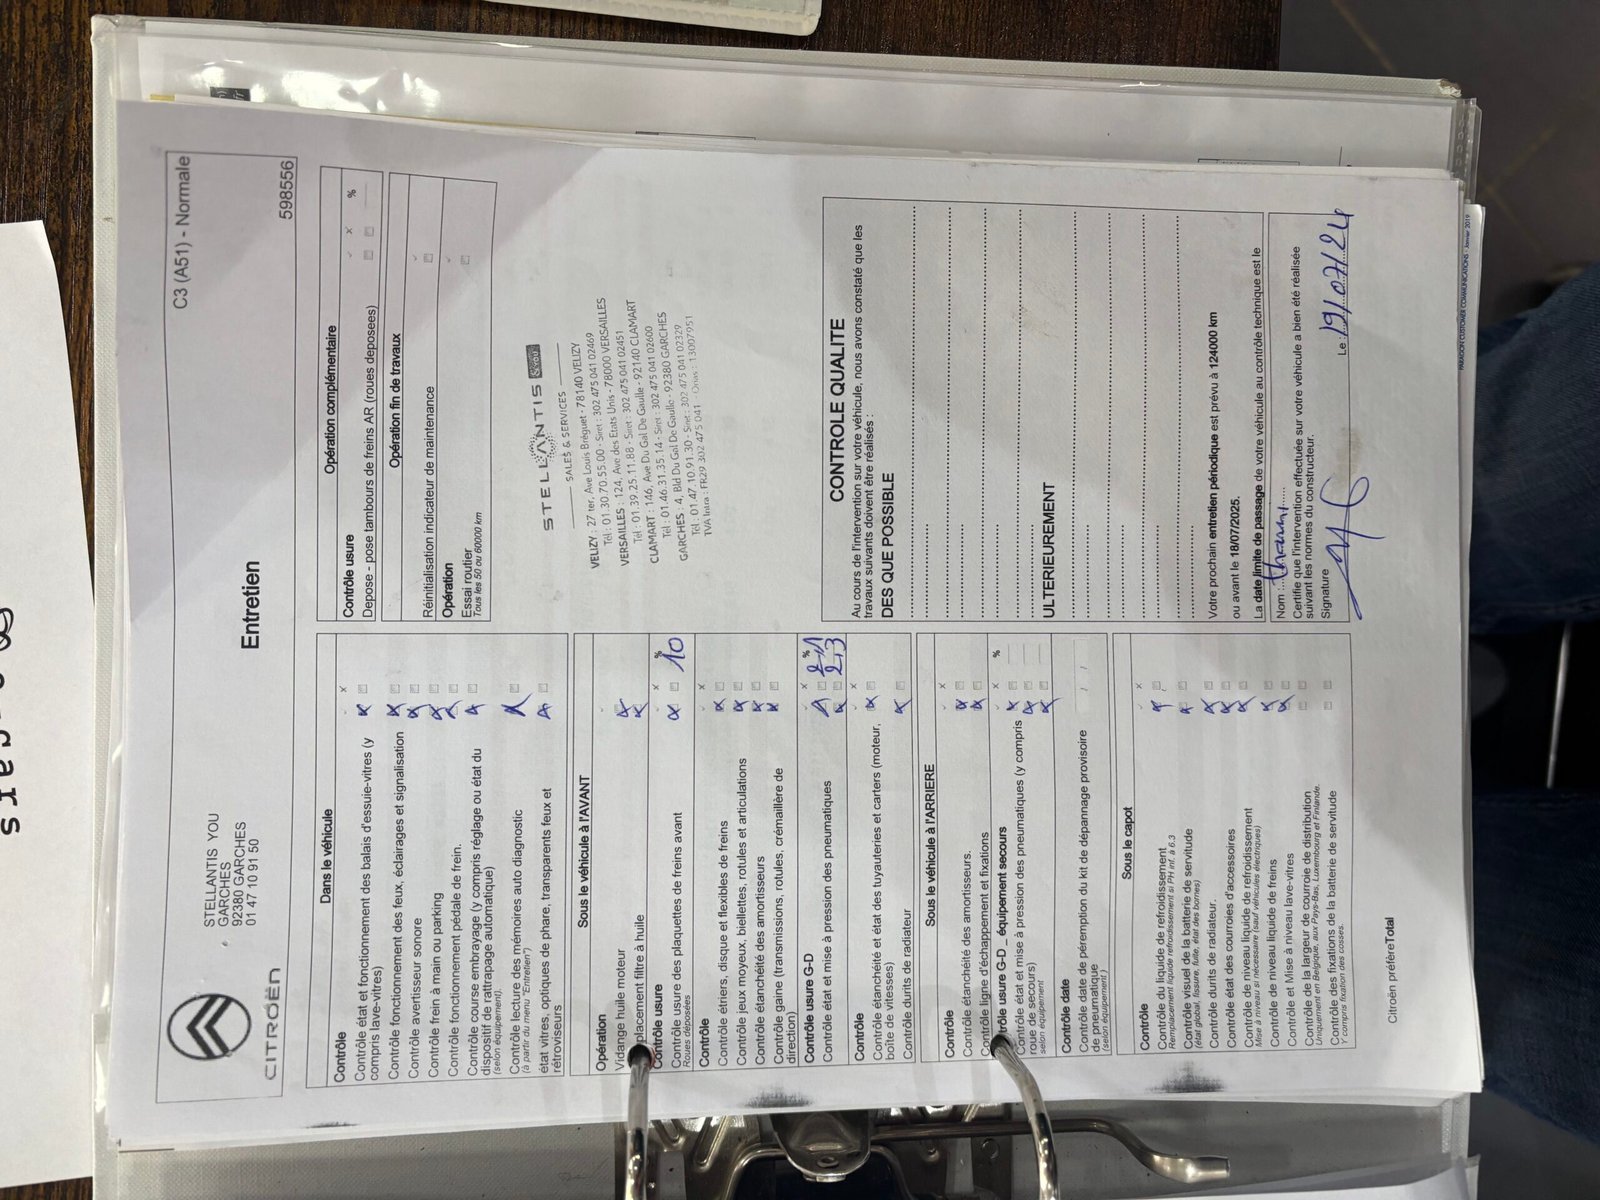 STELLANTIS YOU
GARCHES
92380 GARCHES
01 47 10 91 50
C3 (A51) - Normale
CITROËN
Entretien
598556
Dans le véhicule
Contrôle
Contrôle état et fonctionnement des balais d'essuie-vitres (y
compris lave-vitres)
Contrôle fonctionnement des feux, éclairages et signalisation
Contrôle avertisseur sonore
Contrôle frein à main ou parking
Contrôle fonctionnement pédale de frein.
Contrôle course embrayage (y compris réglage ou état du
dispositif de rattrapage automatique)
(selon équipement).
Contrôle lecture des mémoires auto diagnostic
(à partir du menu "Entretien")
état vitres, optiques de phare, transparents feux et
rétroviseurs
Sous le véhicule à l'AVANT
Opération
Vidange huile moteur
placement filtre à huile
Contrôle usure
%
Contrôle usure des plaquettes de freins avant
10
Roues déposées
Contrôle
Contrôle étriers, disque et flexibles de freins
Contrôle jeux moyeux, biellettes, rotules et articulations
Contrôle étanchéité des amortisseurs
Contrôle gaine (transmissions, rotules, crémaillère de
direction)
Contrôle usure G-D
%
Contrôle état et mise à pression des pneumatiques
2,3
Contrôle
Contrôle étanchéité et état des tuyauteries et carters (moteur,
boîte de vitesses)
Contrôle durits de radiateur
Sous le véhicule à l'ARRIERE
Contrôle
Contrôle étanchéité des amortisseurs.
Contrôle ligne d'échappement et fixations
Contrôle usure G-D _ équipement secours
%
Contrôle état et mise à pression des pneumatiques (y compris
roue de secours)
selon équipement
Contrôle date
Contrôle date de péremption du kit de dépannage provisoire
de pneumatique
(selon équipement )
Sous le capot
Contrôle
Contrôle du liquide de refroidissement
Remplacement liquide refroidissement si PH inf. à 6.3
Contrôle visuel de la batterie de servitude
(état global, fissure, fuite, état des bornes)
Contrôle durits de radiateur.
Contrôle état des courroies d'accessoires
Contrôle de niveau liquide de refroidissement
Mise à niveau si nécessaire (sauf véhicules électriques)
Contrôle de niveau liquide de freins
Contrôle et Mise à niveau lave-vitres
Contrôle de la largeur de courroie de distribution
Uniquement en Belgique, aux Pays-Bas, Luxembourg et Finlande.
Contrôle des fixations de la batterie de servitude
Y compris fixation des cosses.
Citroën préfère Total
Opération complémentaire
Contrôle usure
%
Depose - pose tambours de freins AR (roues deposees)
Opération fin de travaux
Réinitialisation indicateur de maintenance
Opération
Essai routier
Tous les 50 ou 60000 km
STELLANTIS &YOU
SALES & SERVICES
VELIZY : 27 ter, Ave Louis Bréguet - 78140 VELIZY
Tél : 01.30.70.55.00 - Siret : 302 475 041 02469
VERSAILLES : 124, Ave des Etats Unis - 78000 VERSAILLES
Tél : 01.39.25.11.88 - Siret : 302 475 041 02451
CLAMART : 146, Ave Du Gal De Gaulle - 92140 CLAMART
Tél : 01.46.31.35.14 - Siret : 302 475 041 02600
GARCHES : 4, Bld Du Gal De Gaulle - 92380 GARCHES
Tél : 01.47.10.91.30 - Siret : 302 475 041 02329
TVA Intra : FR29 302 475 041 - Orias : 13007951
CONTROLE QUALITE
Au cours de l'intervention sur votre véhicule, nous avons constaté que les
travaux suivants doivent être réalisés :
DES QUE POSSIBLE
ULTERIEUREMENT
Votre prochain entretien périodique est prévu à 124000 km
ou avant le 18/07/2025.
La date limite de passage de votre véhicule au contrôle technique est le
Nom :
Certifie que l'intervention effectuée sur votre véhicule a bien été réalisée
suivant les normes du constructeur.
Signature
Le : 19/07/24
PARAGON CUSTOMER COMMUNICATIONS - Janvier 2019